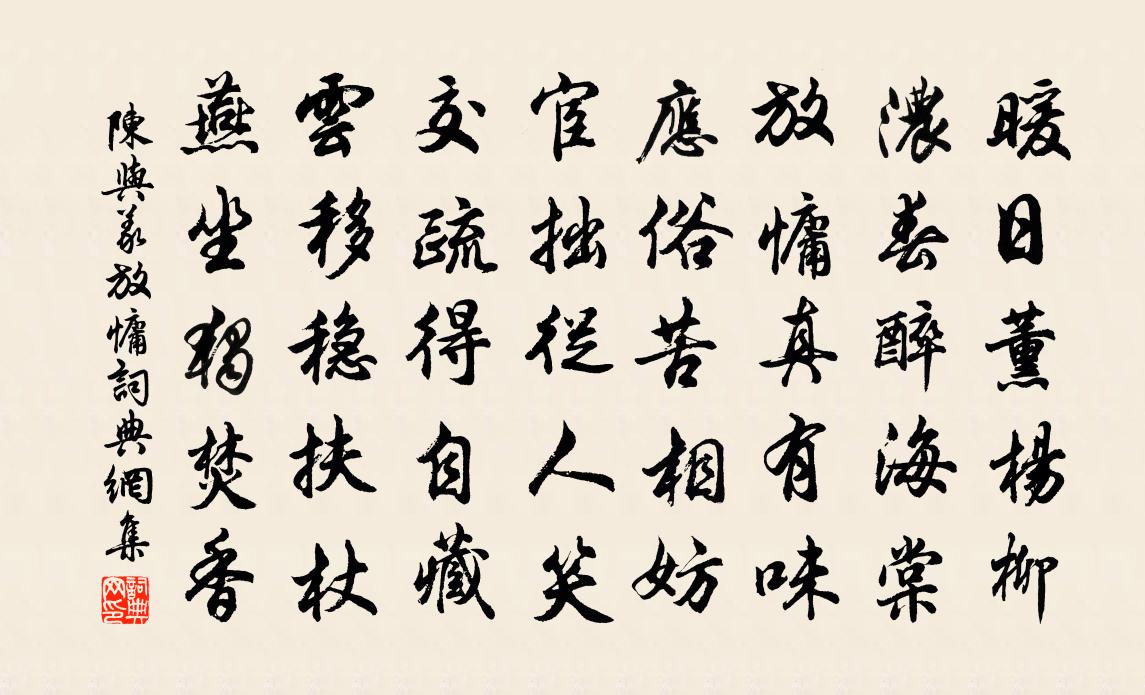 暖日薰楊柳
濃春醉海棠
放慵真有味
應俗苦相妨
宦拙從人笑
交疏得自藏
雲移穩扶杖
燕坐獨焚香
陳與義放慵詞典網集
詞典
网印